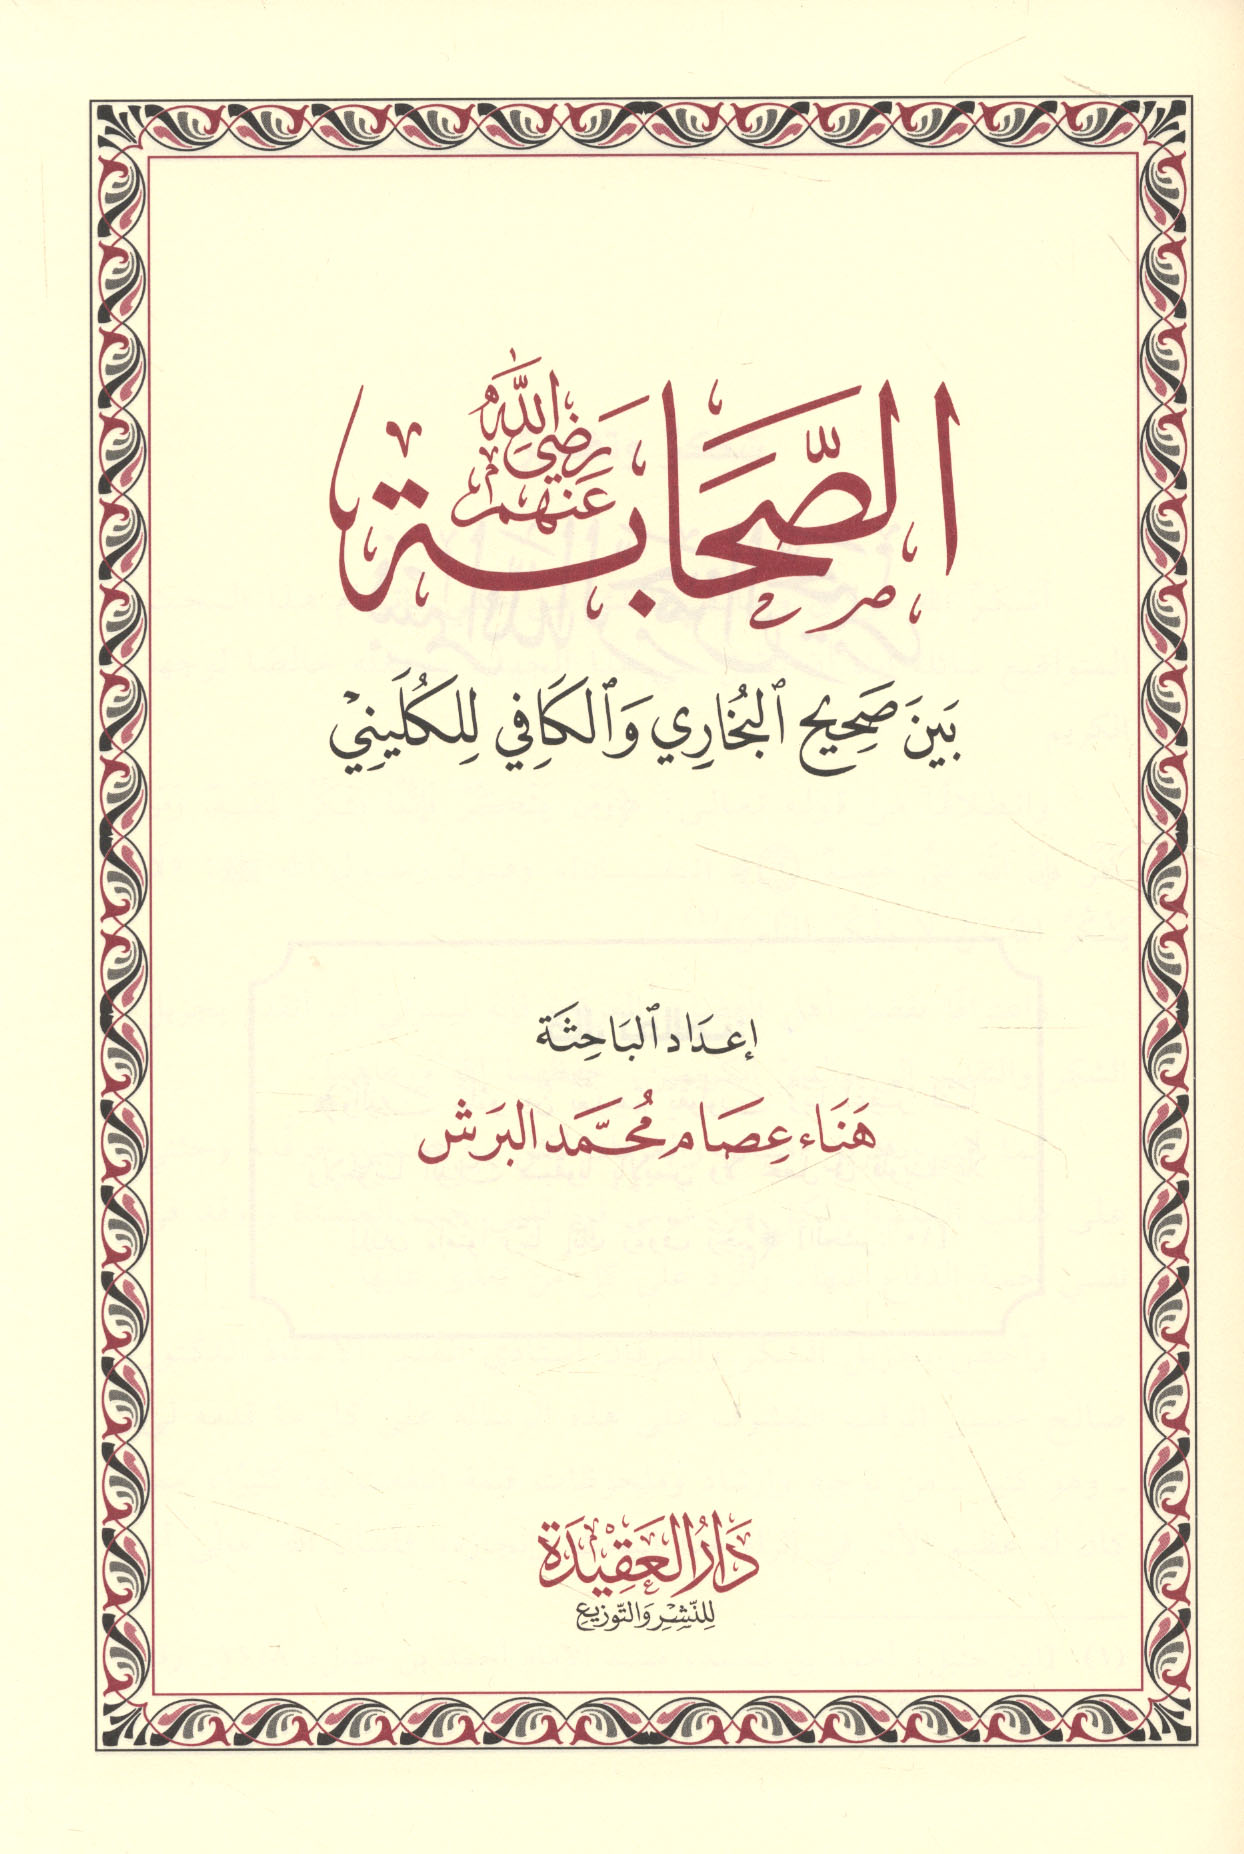 الصَّحَابَة رَضِيَ اللَّهُ عَنهُم
بَيْنَ صَحِيحِ ٱلبُخَارِي وَٱلكَافِي لِلكُلَينِيْ
إعدَاد ٱلبَاحِثَة
هَنَاء عِصَام مُحَمَّد البَرَش
دَارُ العَقِيْدَة
لِلنَّشْرِ وَالتَّوْزِيْعِ